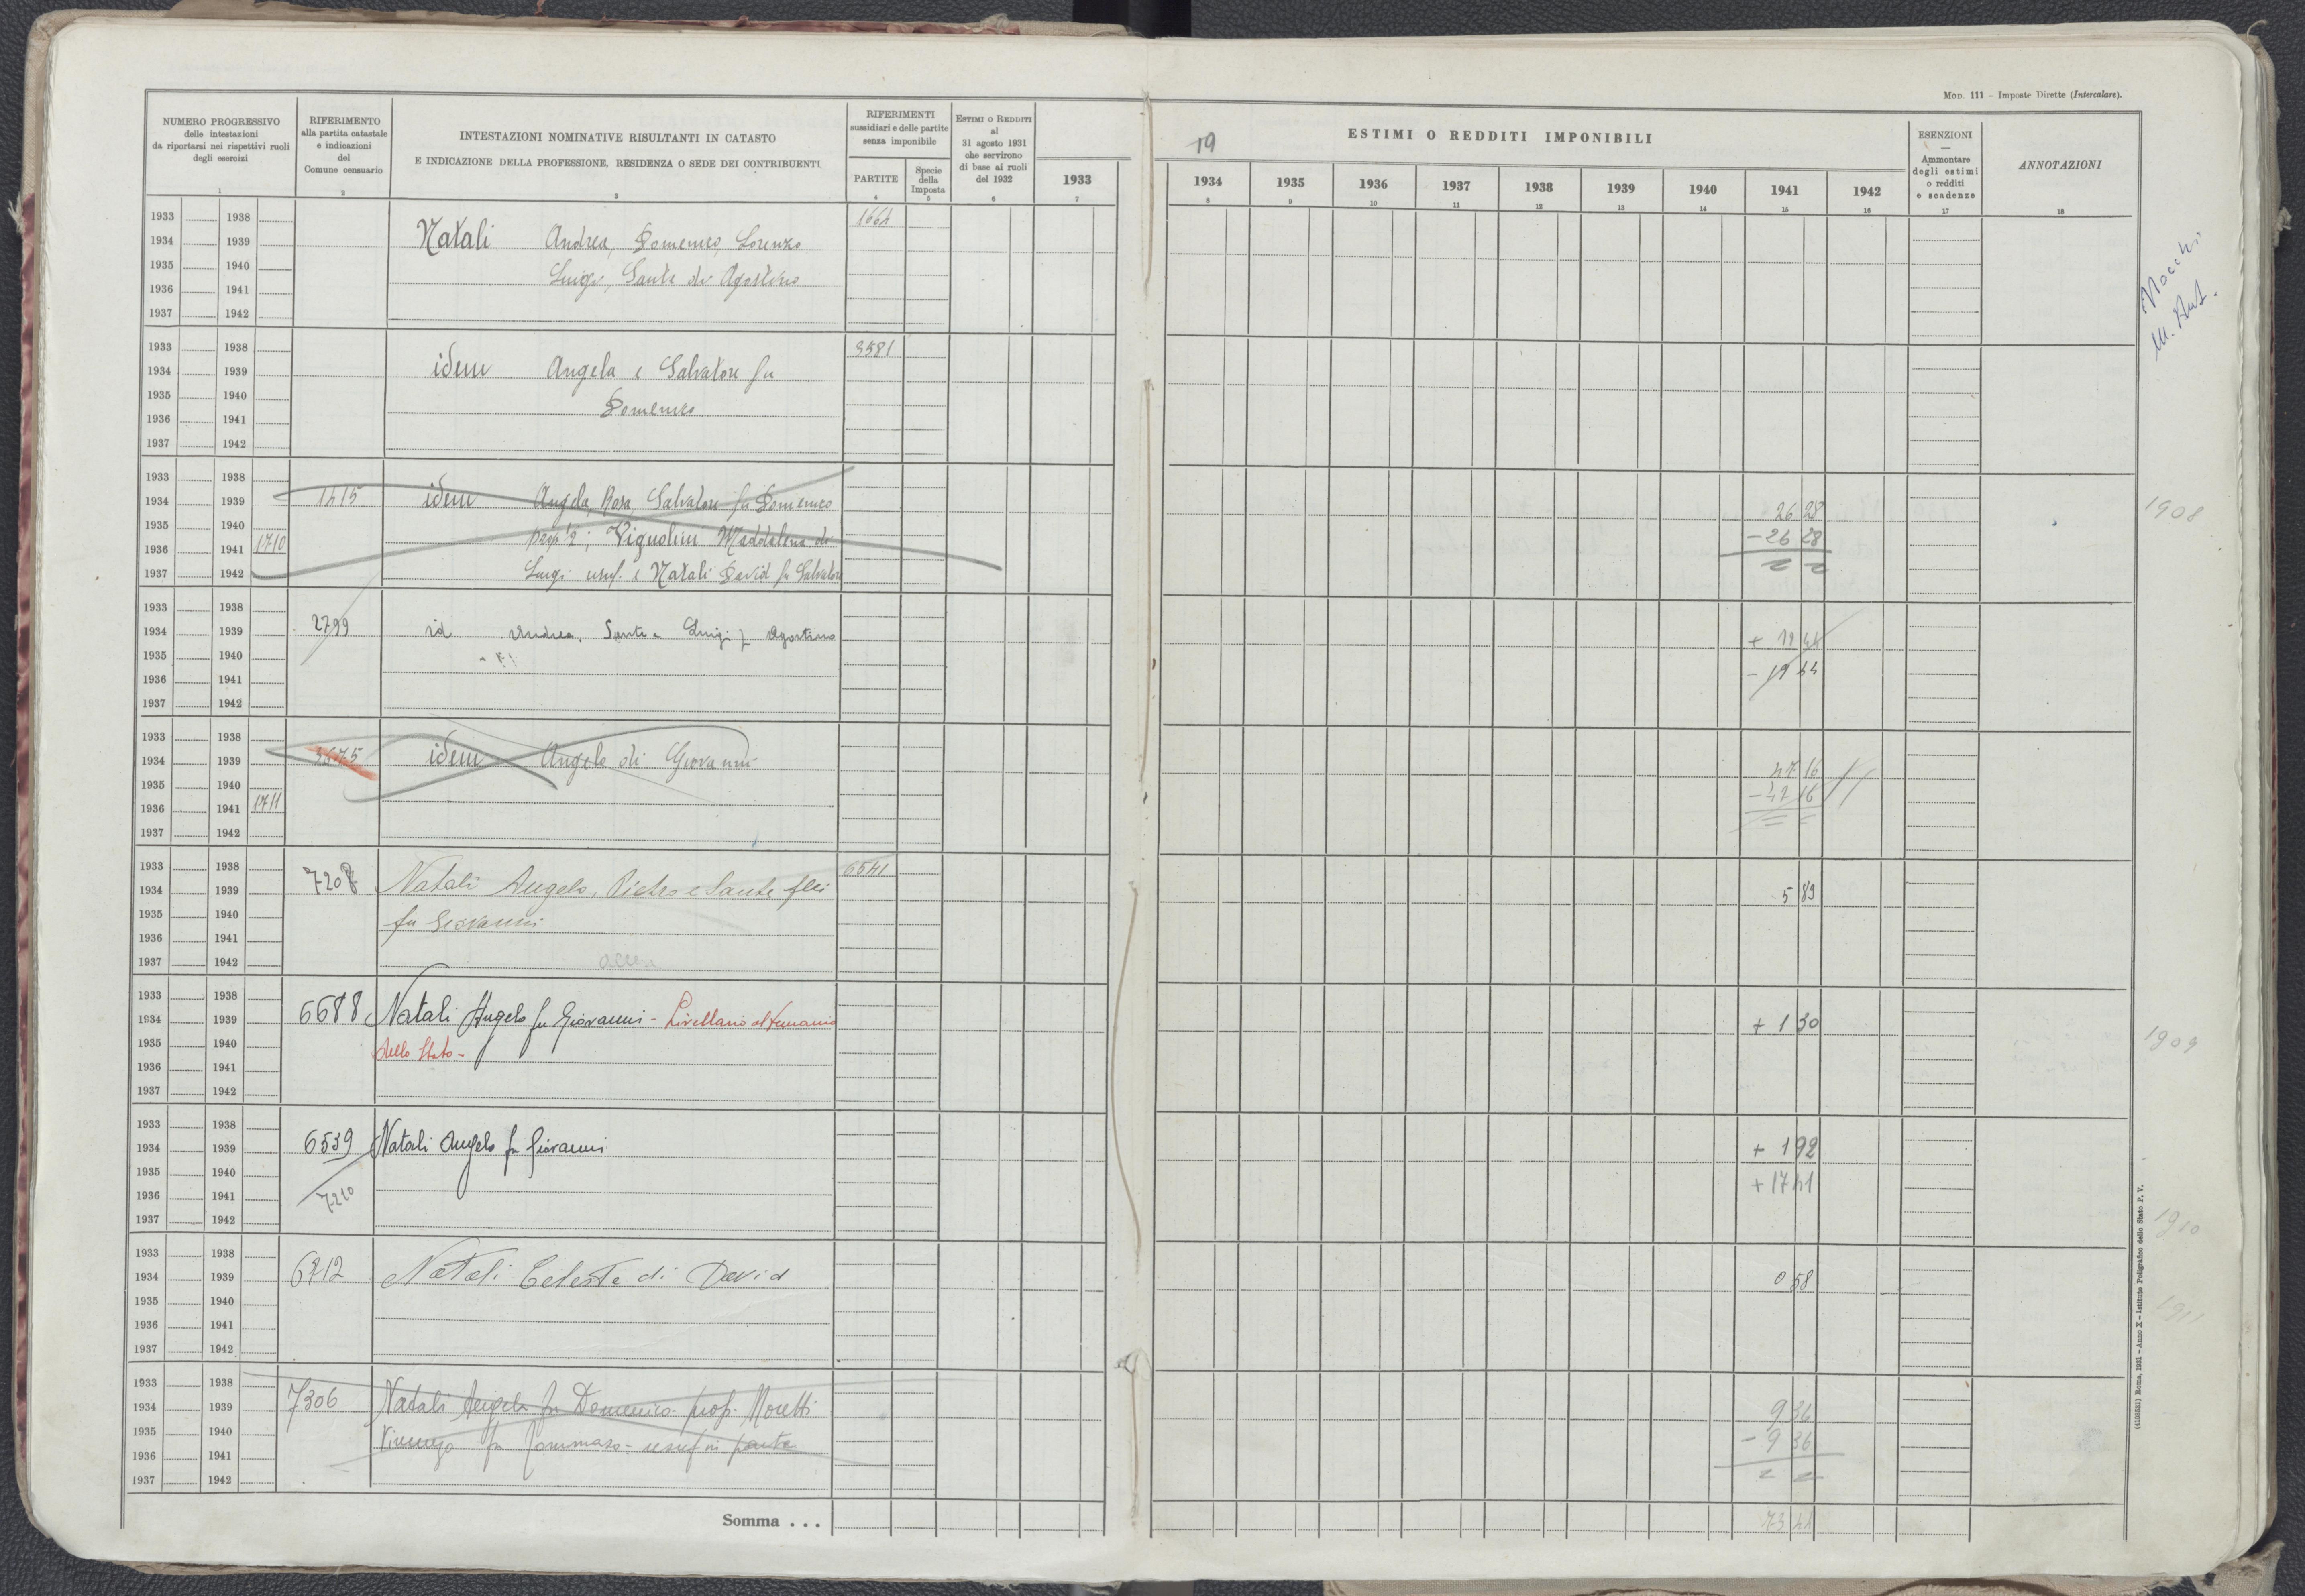 MOD. 111 - Imposte Dirette (Intercalare).
NUMERO PROGRESSIVO
delle intestazioni
da riportarsi nei rispettivi ruoli
degli esercizi
1
RIFERIMENTO
alla partita catastale
e indicazioni
del
Comune censuario
2
INTESTAZIONI NOMINATIVE RISULTANTI IN CATASTO
E INDICAZIONE DELLA PROFESSIONE, RESIDENZA O SEDE DEI CONTRIBUENTI
3
RIFERIMENTI
sussidiari e delle partite
senza imponibile
PARTITE
4
Specie
della
Imposta
5
ESTIMI O REDDITI
al
31 agosto 1931
che servirono
di base ai ruoli
del 1932
6
1933
7
19
ESTIMI O REDDITI IMPONIBILI
1934 1935 1936 1937 1938 1939 1940 1941 1942
8 9 10 11 12 13 14 15 16
ESENZIONI
—
Ammontare
degli estimi
o redditi
e scadenze
17
ANNOTAZIONI
18
1933 1938 1664
1934 1939 Natali Andrea, Domenico, Lorenzo
1935 1940 Luigi, Sante di Agostino
1936 1941
1937 1942
1933 1938 3581
1934 1939 idem Angela e Salvatore fu
1935 1940 Domenico
1936 1941
1937 1942
1933 1938
1934 1939 1415 idem Angela, Rosa, Salvatore fu Domenico 26 28 1908
1935 1940 Vignolini Maddalena di - 26 28
1936 1941 1710
1937 1942 Luigi usuf. e Natali David fu Salvatore
1933 1938
1934 1939 2799 id Andrea, Sante e Luigi f Agostino + 19 44
1935 1940 - 19 44
1936 1941
1937 1942
1933 1938
1934 1939 idem Angelo di Giovanni 47 16
1935 1940 - 47 16
1936 1941 1711
1937 1942
1933 1938 6541
1934 1939 7208 Natali Angelo, Pietro e Sante flli 5 89
1935 1940 fu Giovanni
1936 1941
1937 1942
1933 1938
1934 1939 6688 Natali Angelo fu Giovanni - Livellario al Demanio + 1 30 1909
1935 1940 dello Stato -
1936 1941
1937 1942
1933 1938
1934 1939 6539 Natali Angelo fu Giovanni + 1 92
1935 1940 + 17 41
1936 1941 7210
1937 1942 1910
1933 1938
1934 1939 6212 Natali Celeste di David 0 58
1935 1940 1911
1936 1941
1937 1942
1933 1938
1934 1939 7306 Natali Angela fu Domenico prop. Moretti 9 36
1935 1940 Vincenzo fu Tommaso - usuf in parte - 9 36
1936 1941
1937 1942
Somma . . . 73 44
(4103531) Roma, 1931 - Anno X - Istituto Poligrafico dello Stato P. V.